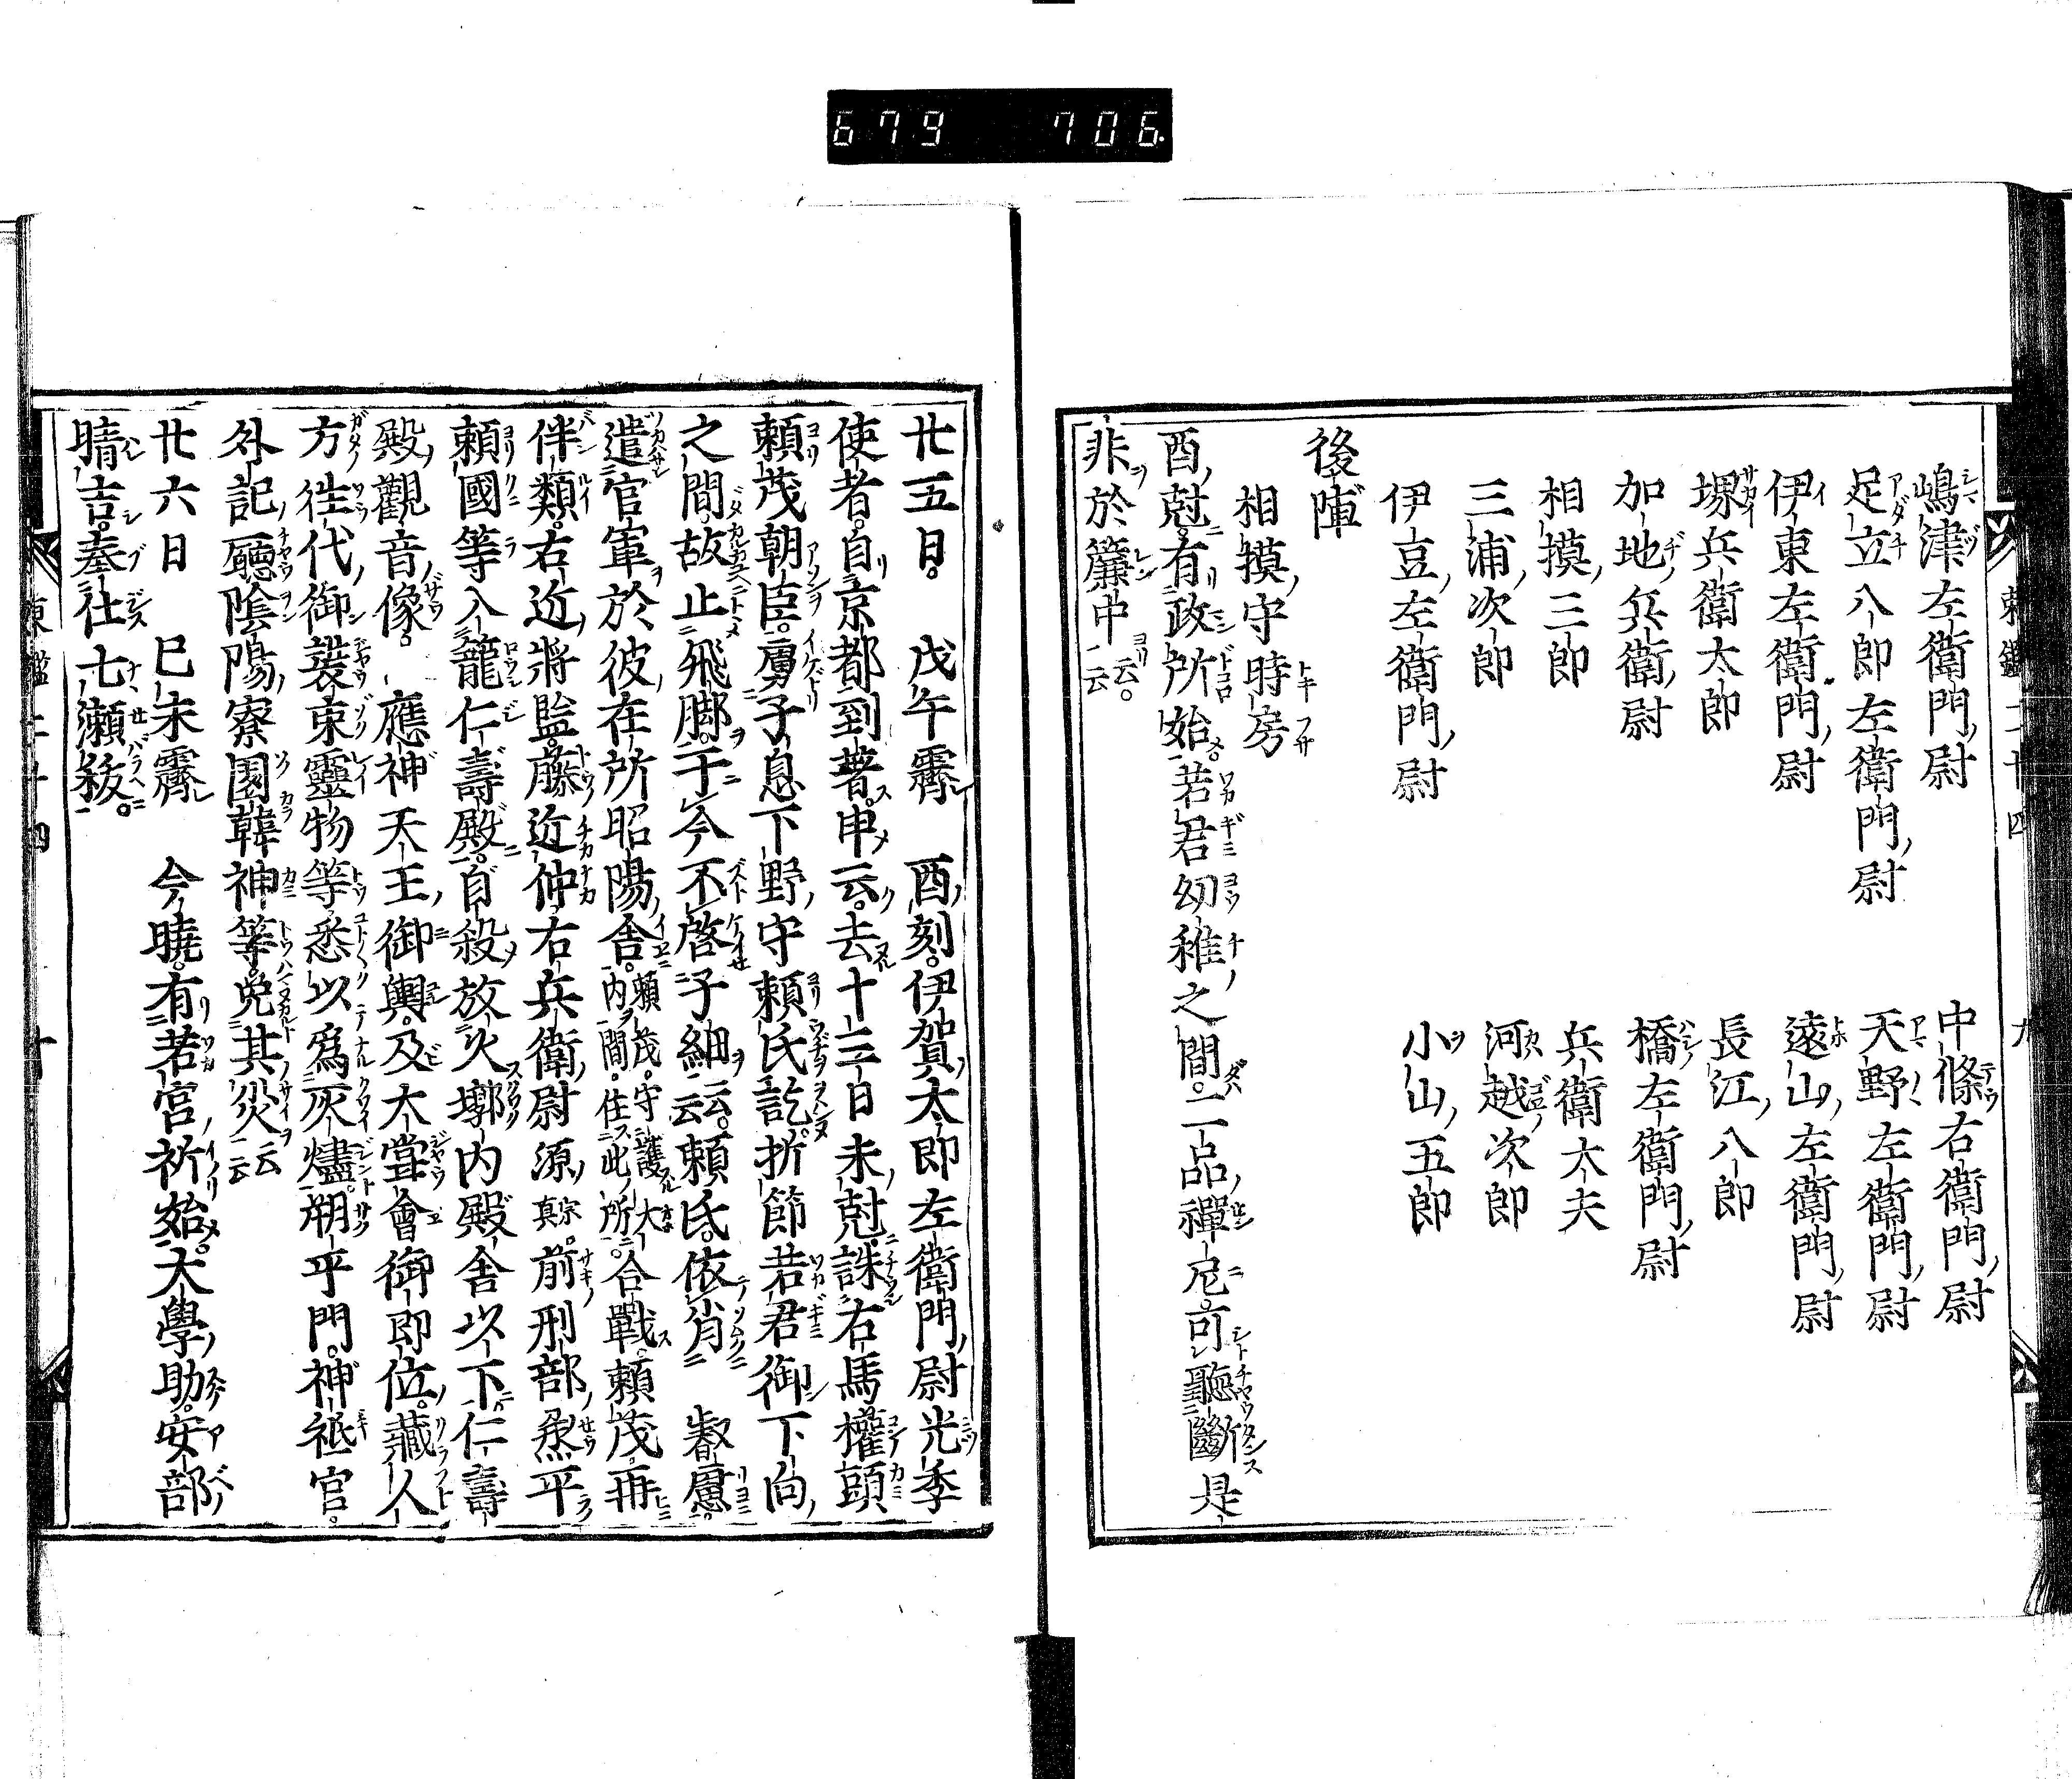 679 706.
嶋津左衛門尉 中條右衛門尉
足立八郎左衛門尉 天野左衛門尉
伊東左衛門尉 遠山左衛門尉
堺兵衛太郎 長江八郎
加地兵衛尉 橋左衛門尉
相摸三郎 兵衛大夫
三浦次郎 河越次郎
伊豆左衛門尉 小山五郎
後陣
相摸守時房
酉尅。有政所始。若君幼稚之間。二品禪尼可聽斷是
非於簾中云云。
廿五日。 戊午霽 酉刻。伊賀太郎左衛門尉光季
使者。自京都到著。申云。去十三日未尅。誅右馬權頭
頼茂朝臣。虜子息下野守頼氏訖。折節若君御下向
之間。故止飛脚。于今不啓子細云云。頼氏。依背 叡慮。
遣官軍於彼在所昭陽舍。頼茂守護大内間。住此所。合戰。頼茂再
伴類。右近將監。藤近仲右兵衛尉源真宗。前刑部烝平
頼國等入籠仁壽殿。自殺放火墎内殿舍以下。仁壽
殿觀音像。 應神天王御輿。及大甞會御即位。藏人
方徃代御裝束靈物等悉以爲灰燼。朔平門。神祇官。
外記廳陰陽寮園韓神等。免其災云云
廿六日 巳未霽 今曉。有若宮祈始。大學助。安部
晴吉。奉仕七瀬祓。
東鑑二十四 十
東鑑二十四 九